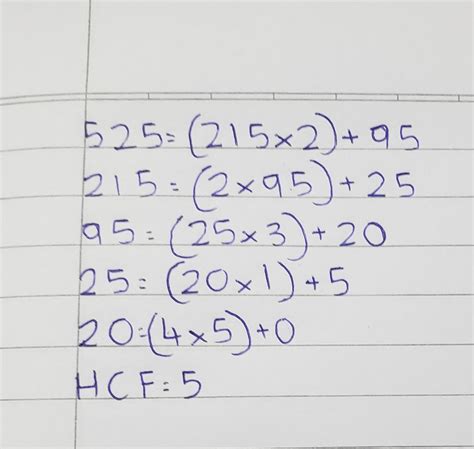 525=(215×2)+95
215=(2×95)+25
95=(25×3)+20
25=(20×1)+5
20=(4×5)+0
HCF=5